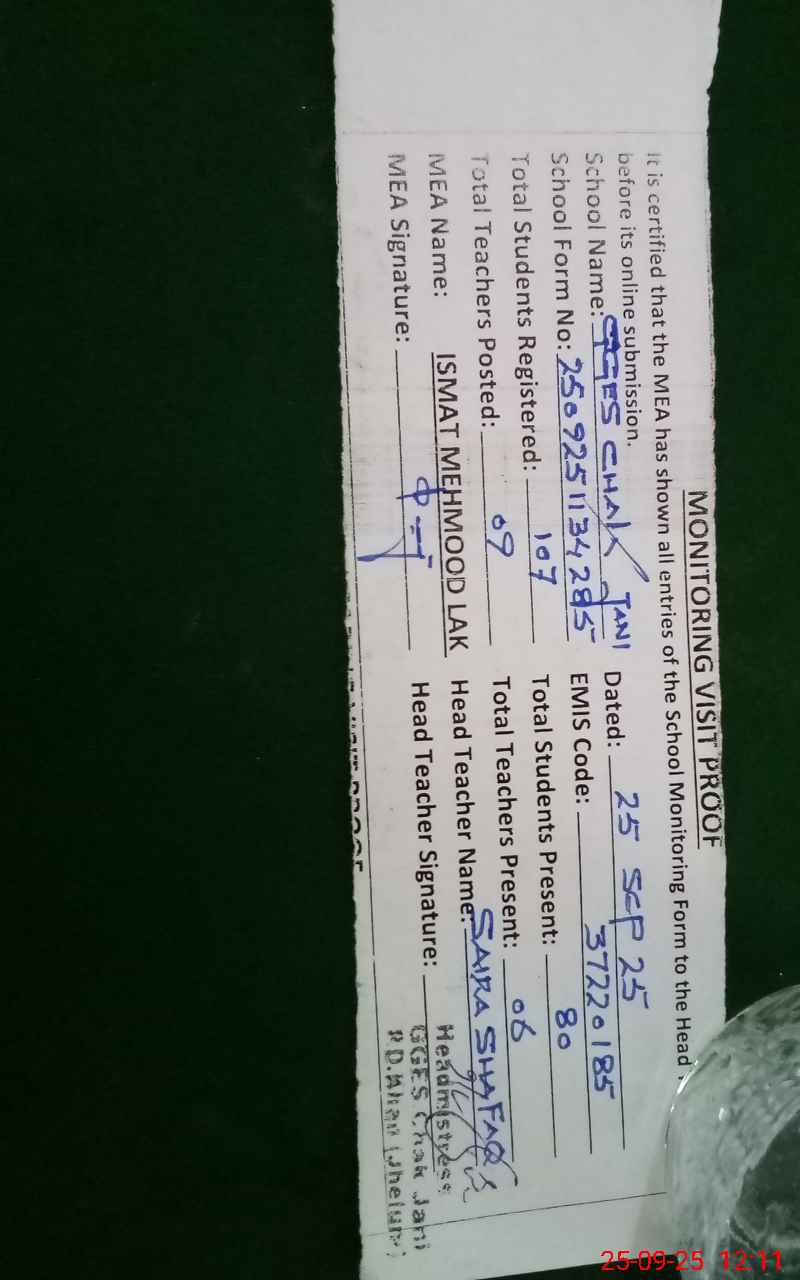 MONITORING VISIT PROOF
It is certified that the MEA has shown all entries of the School Monitoring Form to the Head
before its online submission.
School Name: GGES CHAK JANI Dated: 25 SEP 25
School Form No: 2509251134285 EMIS Code: 37220185
Total Students Registered: 107 Total Students Present: 80
Total Teachers Posted: 09 Total Teachers Present: 06
MEA Name: ISMAT MEHMOOD LAK Head Teacher Name: SAIRA SHAFAQ
MEA Signature: Head Teacher Signature:
Headmistress
GGES Chak Jani
P.D.Khan (Jhelum)
25-09-25 12:11